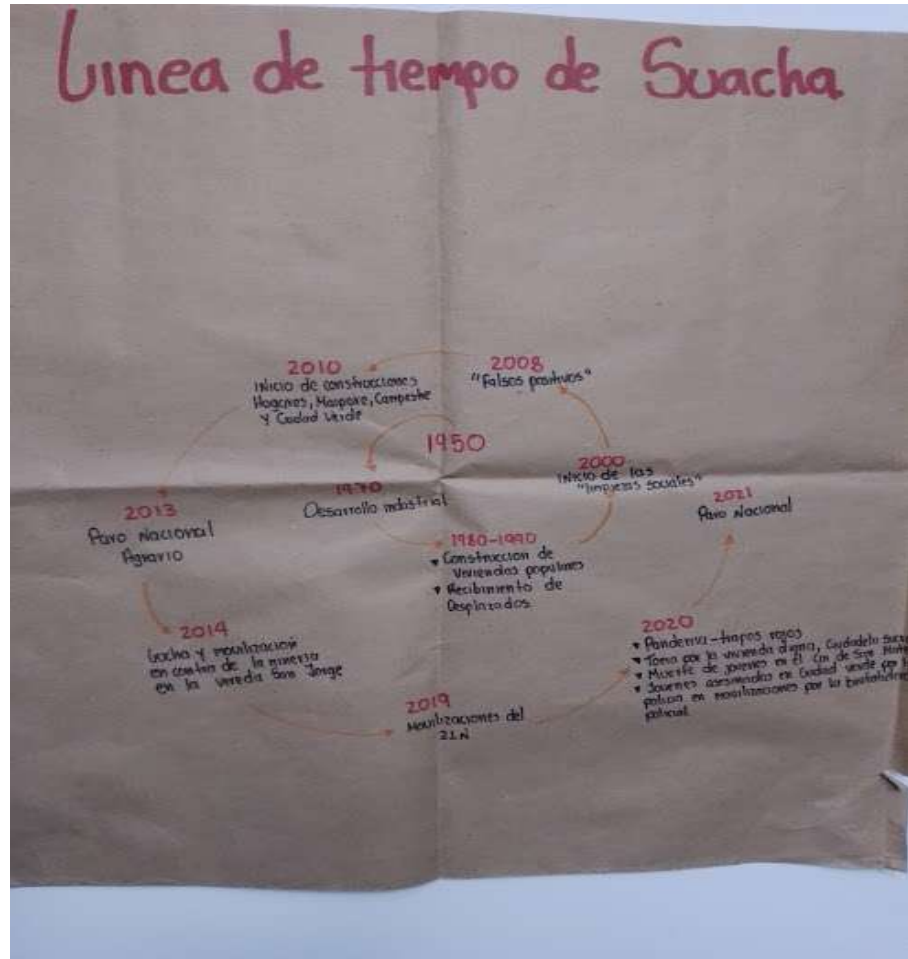 Linea de tiempo de Suacha
1950
1970
Desarrollo industrial
1980-1990
Construccion de
Viviendas populares
Recibimiento de
Desplazados
2000
Inicio de las
"limpiezas sociales"
2008
"Falsos positivos"
2010
Inicio de construcciones
Hogares, Maipore, Campestre
y Ciudad Verde
2013
Paro Nacional
Agrario
2014
Lucha y movilizacion
en contra de la mineria
en la vereda San Jorge
2019
Movilizaciones del
21N
2020
Pandemia-trapos rojos
Toma por la vivienda digna, Ciudadela
Muerte de jovenes en el de San Mateo
Jovenes asesinados en Ciudad Verde por
policia en movilizaciones por la brutalidad
policial.
2021
Paro Nacional